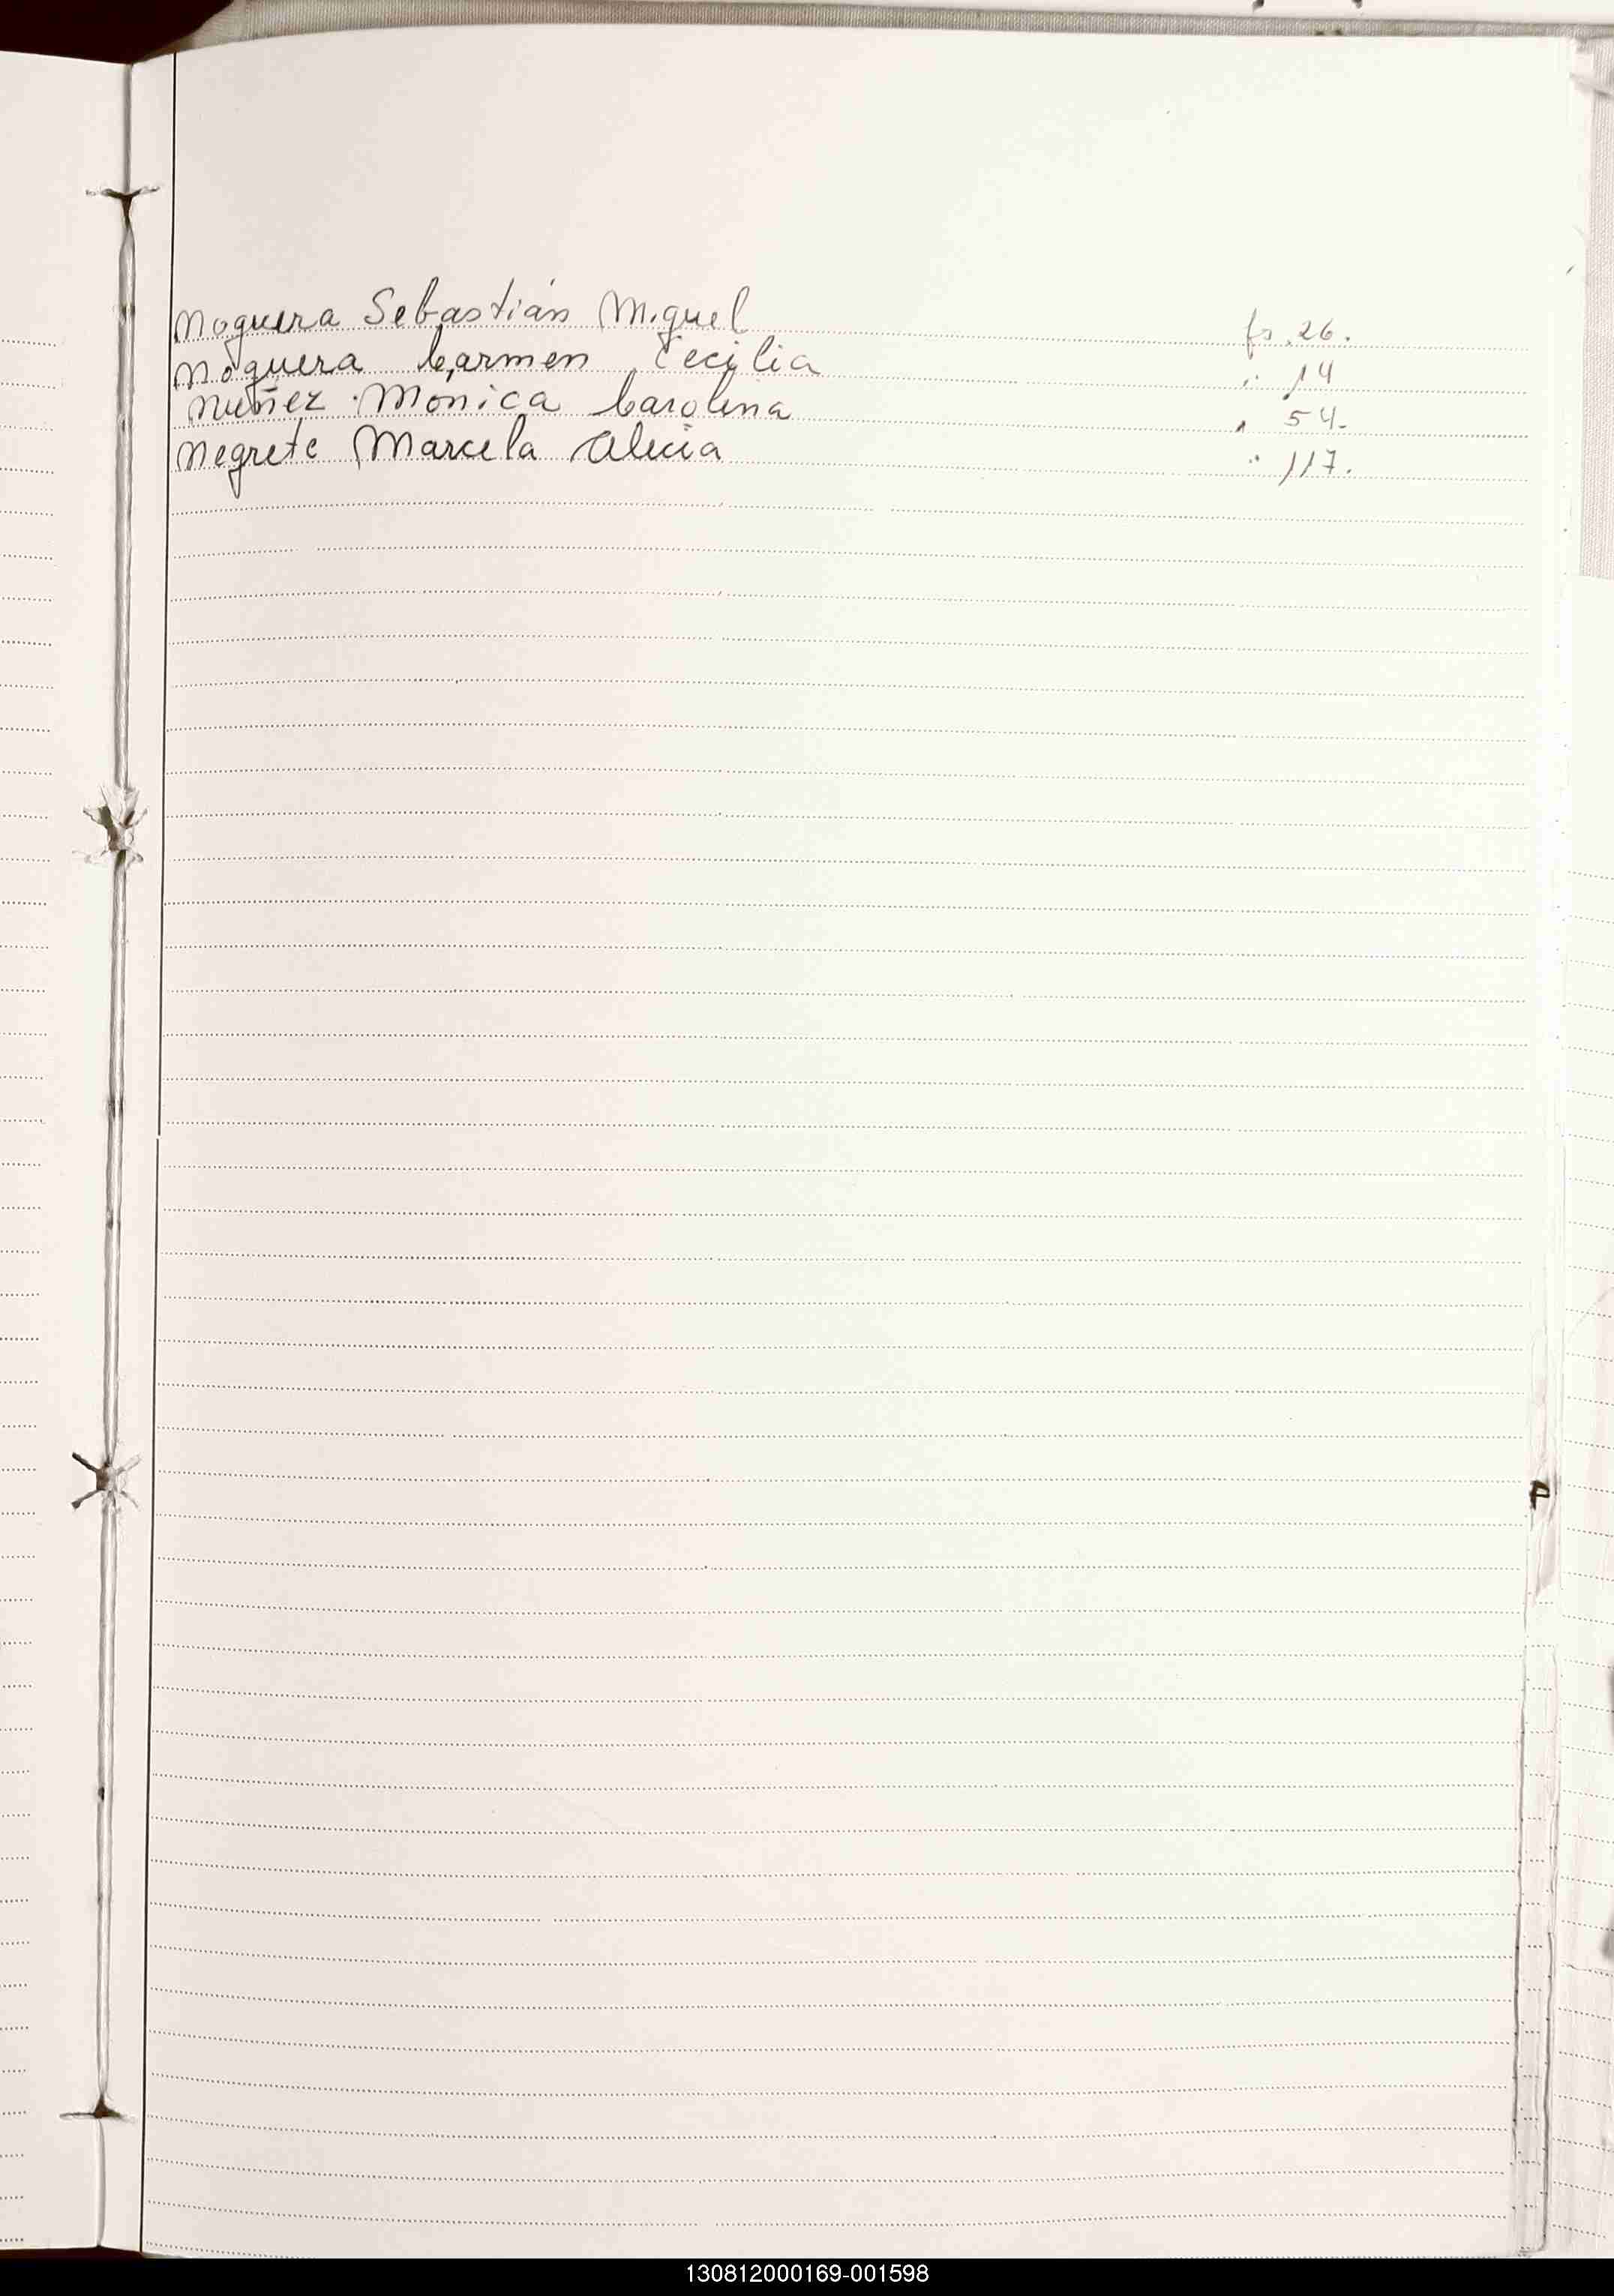 Noguera Sebastián Miguel fs. 26.
Noguera Carmen Cecilia " 14
Nuñez Monica Carolina " 54.
Negrete Marcela Alicia " 117.
P
130812000169-001598